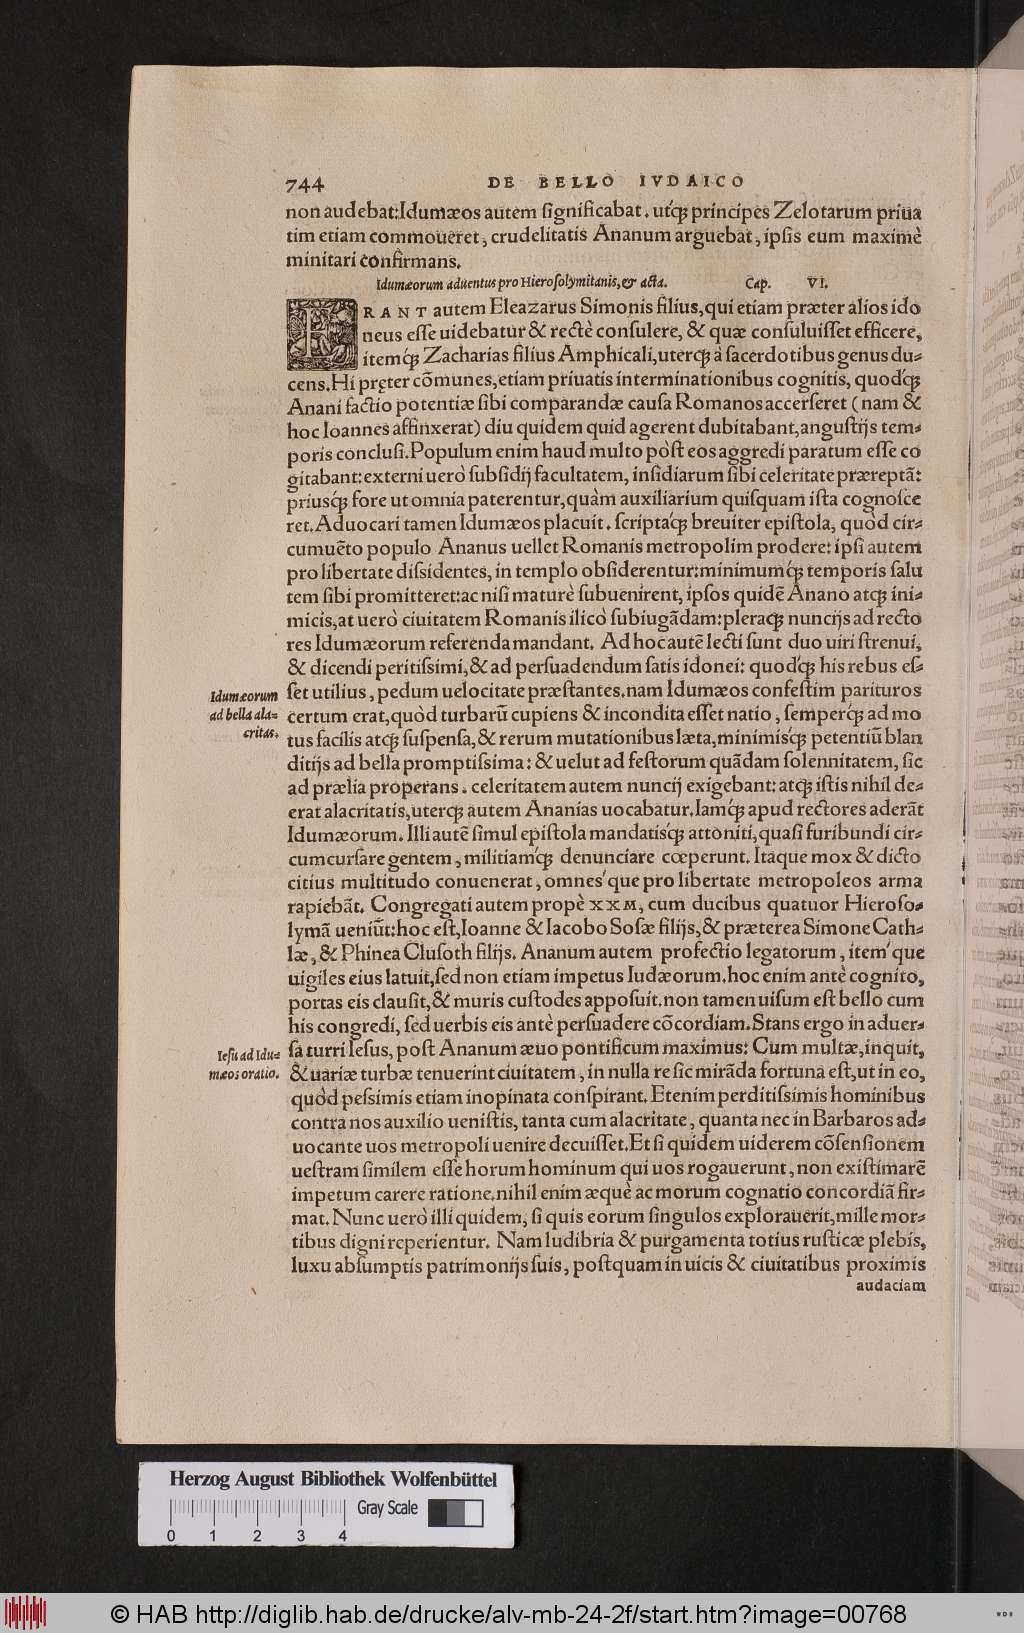 744 DE BELLO IVDAICO
non audebat: Idumæos autem ſignificabat. utq́ꝫ príncípes Zelotarum príua
tim etiam commoueret, crudelitatis Ananum arguebat, ipſis eum maximè
minitari confirmans.
Idumæorum aduentus pro Hieroſolymitanis, & acta. Cap. VI.
ERANT autem Eleazarus Simonis filius, qui etiam præter alios ido
neus eſſe uidebatur & rectè conſulere, & quæ conſuluiſſet efficere,
itemq́ꝫ Zacharias filius Amphicali, uterqꝫ à ſacerdotibus genus du-
cens. Hi pręter cõmunes, etiam priuatis interminationibus cognitis, quodq́ꝫ
Anani factio potentiæ ſibi comparandæ cauſa Romanos accerſeret (nam &
hoc Ioannes affinxerat) diu quidem quid agerent dubitabant, anguſtijs tem-
poris concluſi. Populum enim haud multo pòſt eos aggredi paratum eſſe co
gitabant: externi uerò ſubſidij facultatem, inſidiarum ſibi celeritate præreptã:
priusq́ꝫ fore ut omnia paterentur, quàm auxiliarium quiſquam iſta cognoſce
ret. Aduocari tamen Idumæos placuit. ſcriptaq́ꝫ breuiter epiſtola, quòd cir-
cumuẽto populo Ananus uellet Romanis metropolim prodere: ipſi autem
pro libertate diſsidentes, in templo obſiderentur: minimumq́ꝫ temporis ſalu
tem ſibi promitteret: ac niſi maturè ſubuenirent, ipſos quidẽ Anano atqꝫ ini-
micis, at uerò ciuitatem Romanis ilicò ſubiugãdam: pleraqꝫ nuncijs ad recto
res Idumæorum referenda mandant. Ad hoc autẽ lecti ſunt duo uiri ſtrenui,
& dicendi peritiſsimi, & ad perſuadendum ſatis idonei: quodq́ꝫ his rebus eſ-
Idumæorum
ad bella ala-
critas.
ſet utilius, pedum uelocitate præſtantes. nam Idumæos confeſtim parituros
certum erat, quòd turbarũ cupiens & incondita eſſet natio, ſemperq́ꝫ ad mo
tus facilis atqꝫ ſuſpenſa, & rerum mutationibus læta, minimisq́ꝫ petentiũ blan
ditijs ad bella promptiſsima: & uelut ad feſtorum quãdam ſolennitatem, ſic
ad prælia properans. celeritatem autem nuncij exigebant: atqꝫ iſtis nihil de-
erat alacritatis, uterqꝫ autem Ananias uocabatur. Iamq́ꝫ apud rectores aderãt
Idumæorum. Illi autẽ ſimul epiſtola mandatisq́ꝫ attoniti, quaſi furibundi cir-
cumcurſare gentem, militiamq́ꝫ denunciare cœperunt. Itaque mox & dicto
citius multitudo conuenerat, omnes'que pro libertate metropoleos arma
rapiebãt. Congregati autem propè XXM, cum ducibus quatuor Hieroſo-
lymã ueniũt: hoc eſt, Ioanne & Iacobo Soſæ filijs, & præterea Simone Cath-
læ, & Phinea Cluſoth filijs. Ananum autem profectio legatorum, item'que
uigiles eius latuit, ſed non etiam impetus Iudæorum. hoc enim antè cognito,
portas eis clauſit, & muris cuſtodes appoſuit. non tamen uiſum eſt bello cum
his congredi, ſed uerbis eis antè perſuadere cõcordiam. Stans ergo in aduer-
Ieſu ad Idu-
mæos oratio.
ſa turri Ieſus, poſt Ananum æuo pontificum maximus: Cum multæ, inquit,
& uariæ turbæ tenuerint ciuitatem, in nulla re ſic mirãda fortuna eſt, ut in eo,
quòd peſsimis etiam inopinata conſpirant. Etenim perditiſsimis hominibus
contra nos auxilio ueniſtis, tanta cum alacritate, quanta nec in Barbaros ad-
uocante uos metropoli uenire decuiſſet. Et ſi quidem uiderem cõſenſionem
ueſtram ſimilem eſſe horum hominum qui uos rogauerunt, non exiſtimarẽ
impetum carere ratione. nihil enim æquè ac morum cognatio concordiã fir-
mat. Nunc uerò illi quidem, ſi quis eorum ſingulos explorauerit, mille mor-
tibus digni reperientur. Nam ludibria & purgamenta totius ruſticæ plebis,
luxu abſumptis patrimonijs ſuis, poſtquam in uicis & ciuitatibus proximis
audaciam
Herzog August Bibliothek Wolfenbüttel
Gray Scale
0 1 2 3 4
© HAB http://diglib.hab.de/drucke/alv-mb-24-2f/start.htm?image=00768